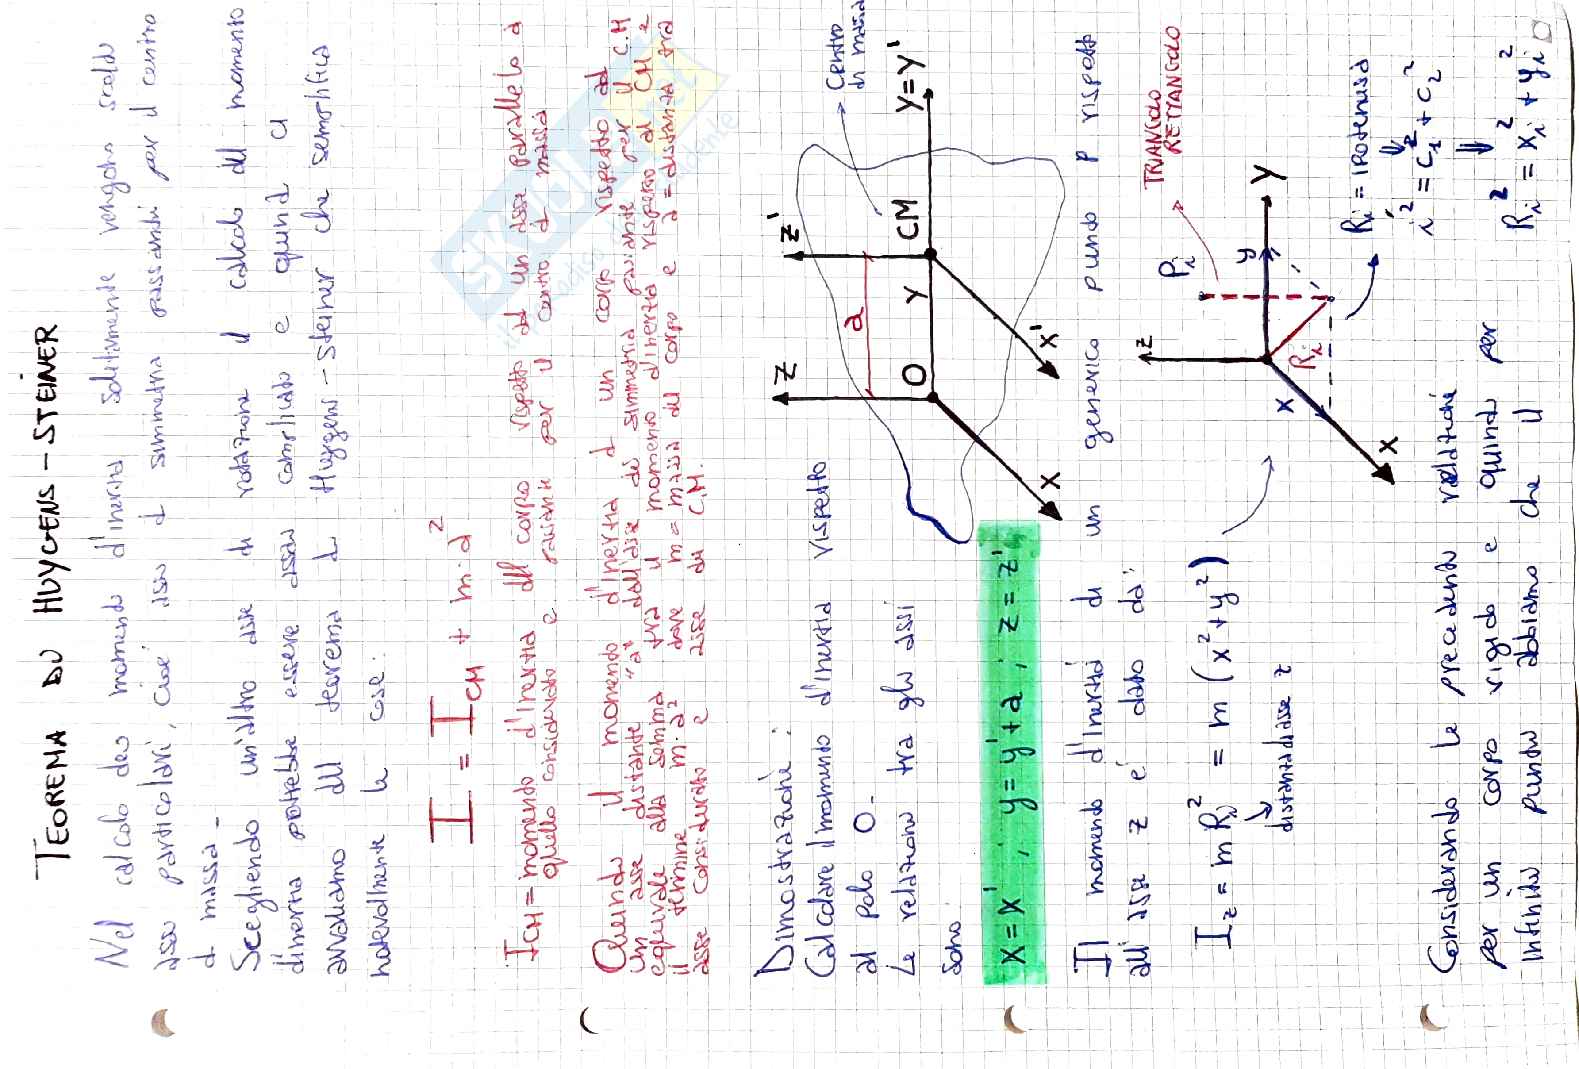 TEOREMA DI HUYGENS-STEINER
Nel calcolo dei momenti d'inerzia solitamente vengono scelti
assi particolari, cioè assi di simmetria passanti per il centro
di massa-
Scegliendo un'altro asse di rotazione il calcolo del momento
d'inerzia potrebbe essere assai complicato e quindi ci
avvaliamo del teorema di Huygens-Steiner che semplifica
notevolmente le cose:
I = I_CM + m·a²
I_CM = momento d'inerzia del corpo rispetto ad un asse parallelo a
quello considerato e passante per il centro di massa
Quindi il momento d'inerzia di un corpo rispetto ad
un asse distante "a" dall'asse di simmetria passante per il C.M
equivale alla somma tra il momento d'inerzia rispetto al CM e
il termine m·a² dove m = massa del corpo e a = distanza tra
asse considerato e asse di C.M.
Dimostrazione:
Calcolare il momento d'inerzia rispetto
al polo O-
Le relazioni tra gli assi
sono
x = x' ; y = y'+a ; z = z'
z
z'
a
O
y
CM
y=y'
x
x'
Centro
di massa
Il momento d'inerzia di un generico punto P rispetto
all'asse z è dato da:
I_z = m R_i² = m (x²+y²)
distanza da asse z
z
x
x
y
y
P_i
R_i
TRIANGOLO
RETTANGOLO
R_i = ipotenusa
i² = c₁² + c₂²
R_i² = x_i² + y_i²
Considerando le precedenti relazioni
per un corpo rigido e quindi per
infiniti punti abbiamo che il
SKUOLA.net